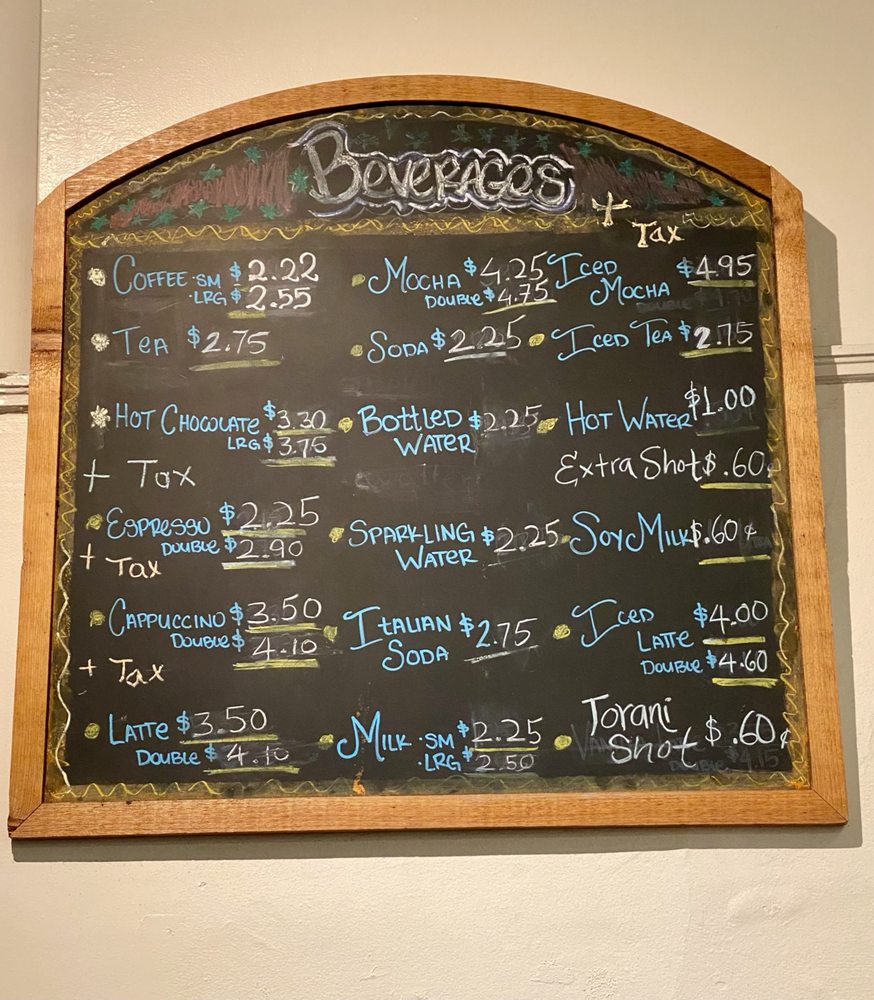 Beverages
+ Tax
Coffee · SM $2.22
· LRG $2.55
Tea $2.75
Hot Chocolate $3.30
LRG $3.75
+ Tax
Espresso $2.25
Double $2.90
+ Tax
Cappuccino $3.50
Double $4.10
+ Tax
Latte $3.50
Double $4.10
Mocha $4.25
Double $4.75
Soda $2.25
Bottled $2.25
Water
Sparkling $2.25
Water
Italian $2.75
Soda
Milk · SM $2.25
· LRG $2.50
Iced $4.95
Mocha
Iced Tea $2.75
Hot Water $1.00
Extra Shot $.60¢
Soy Milk $.60¢
Iced $4.00
Latte
Double $4.60
Torani $.60¢
Shot